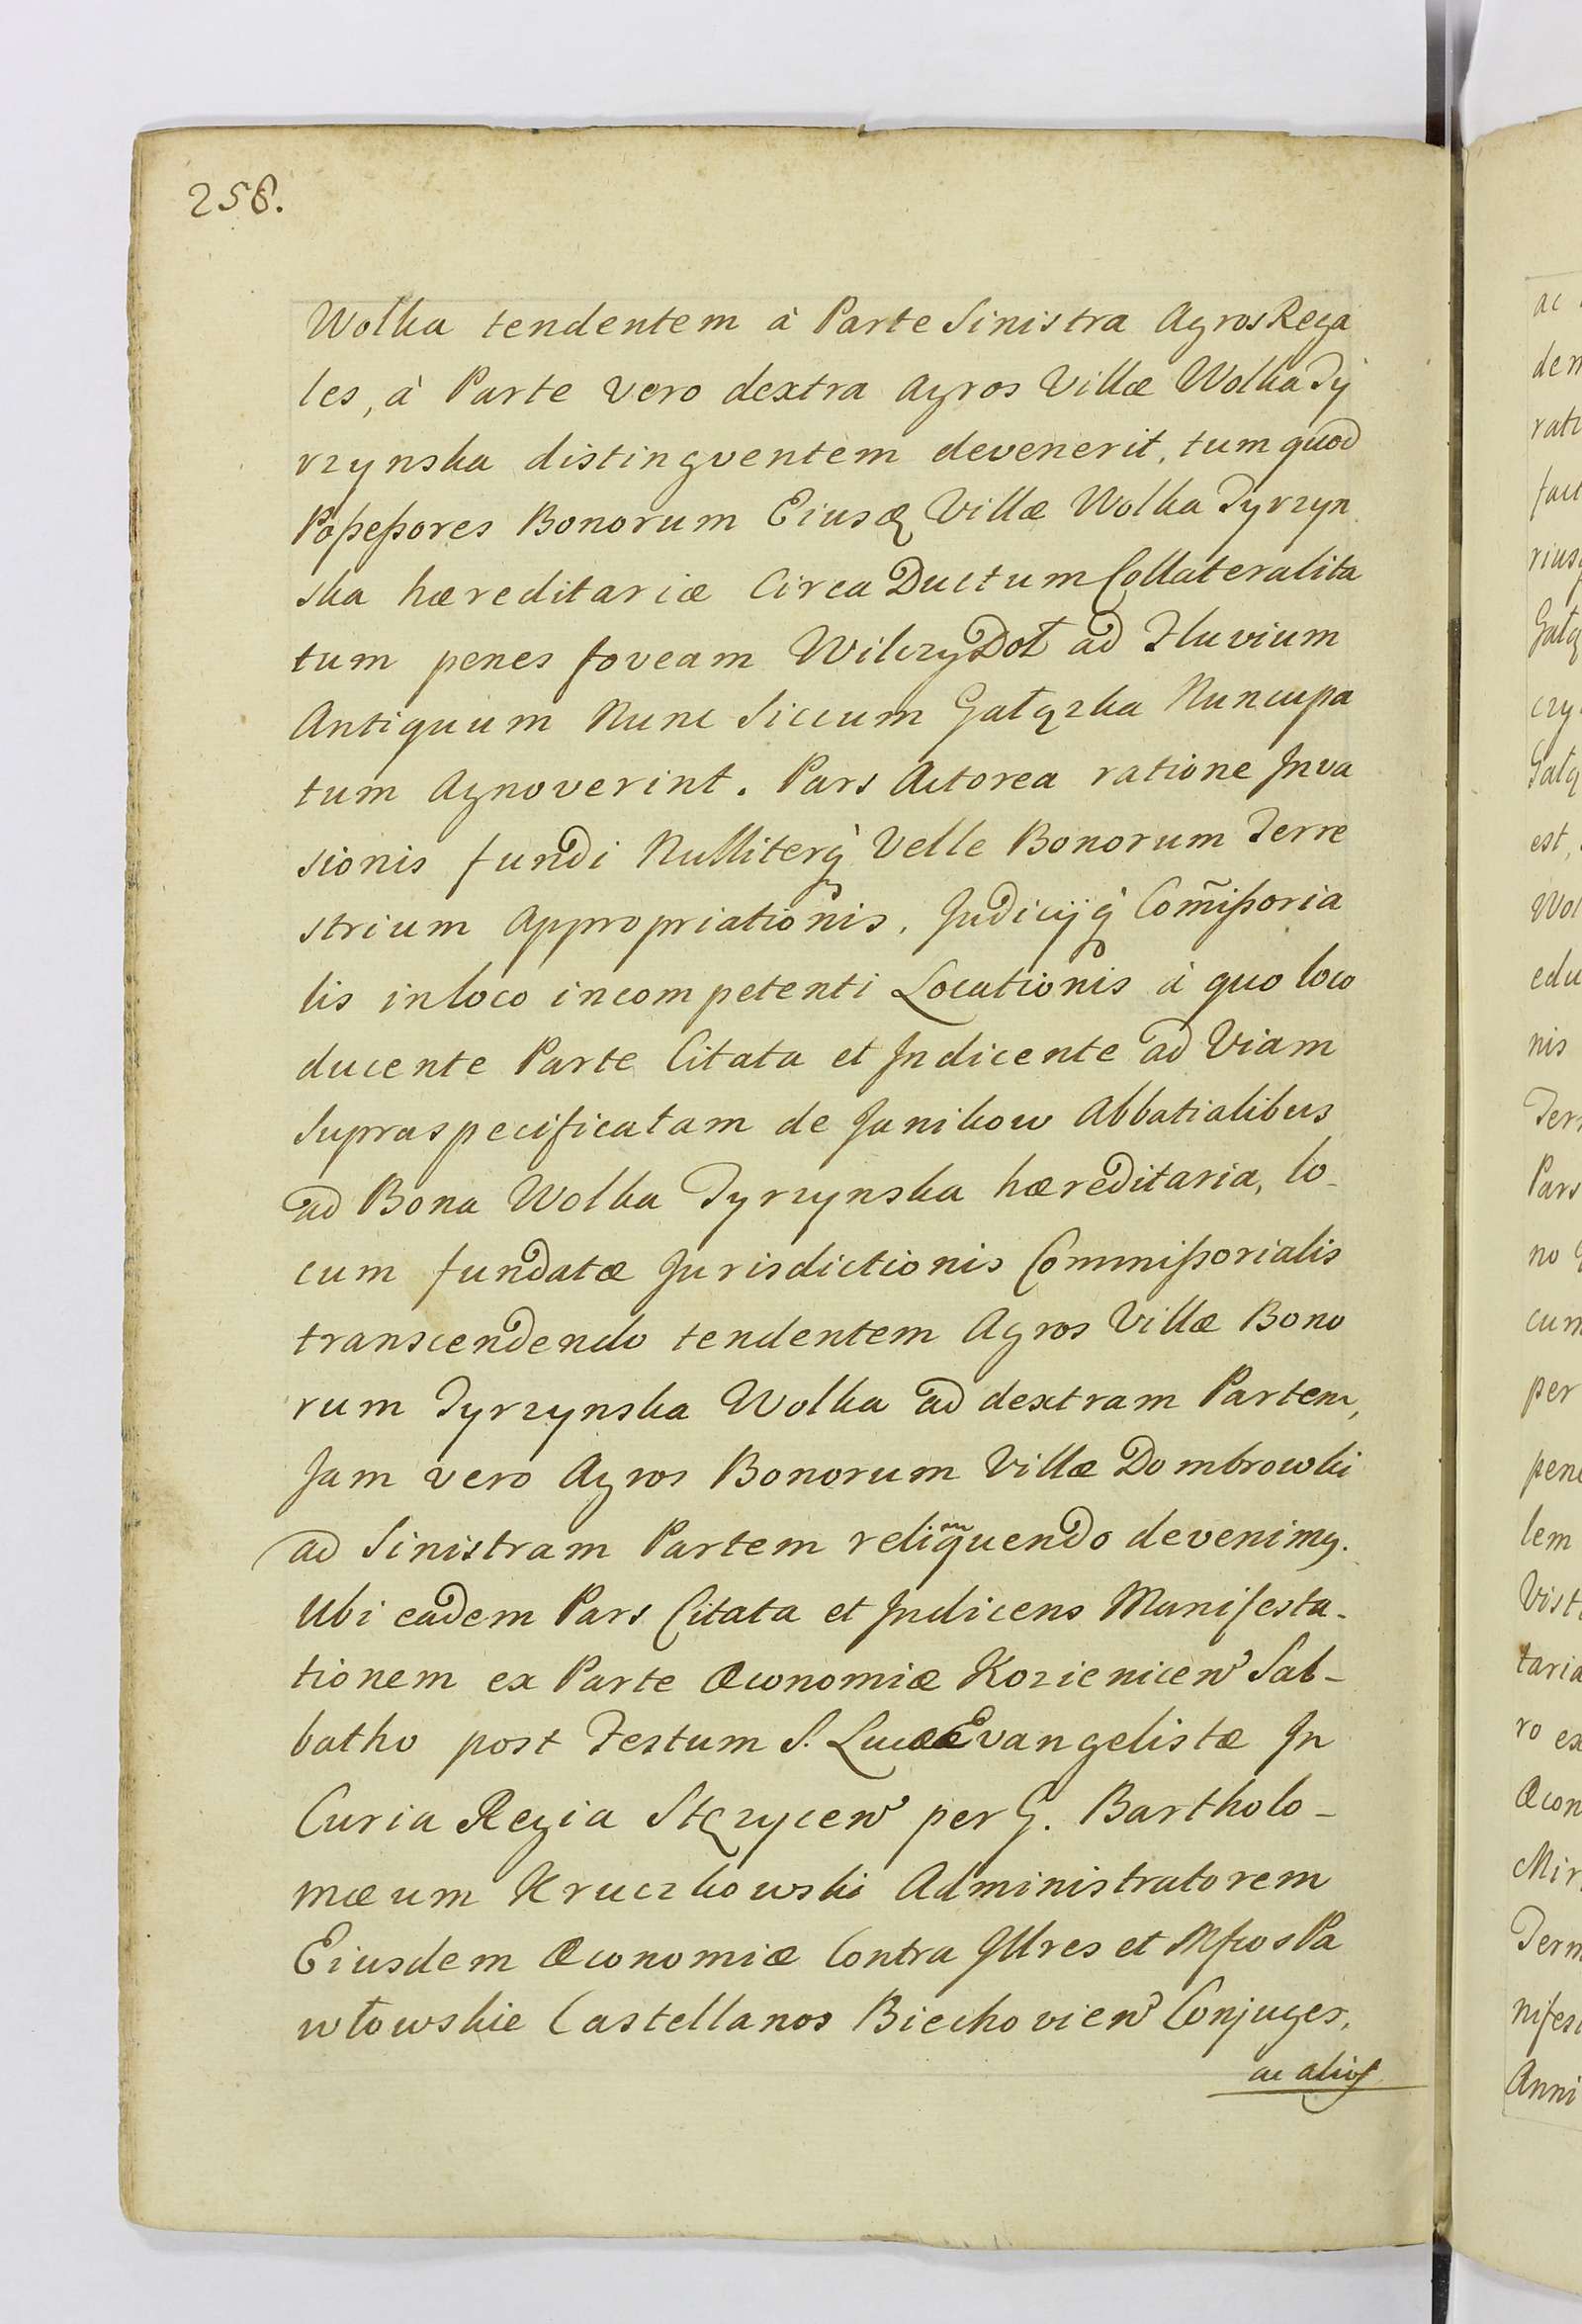 258.
Wolka tendentem à Parte Sinistra Agros Rega
les, à Parte vero dextra Agros Villæ Wolka Ty
rzynska distingventem devenerit, tum quod
Poſseſsores Bonorum Eiusq Villæ Wolka Tyrzyn
ska hæreditariæ Circa Ductum Collateralita
tum penes foveam Wilczy Doł ad Fluvium
Antiquum Nunc Siccum Gałązka Nuncupa
tum Agnoverint. Pars Actorea ratione Inva
sionis fundi Nulliterq Velle Bonorum Terre
strium Appropriationis, Judicijq Com̃iſsoria
lis in loco incompetenti Locationis à quo loco
ducente Parte Citata et Indicente ad Viam
Supraspecificatam de Janikow Abbatialibus
ad Bona Wolka Tyrzynska hæreditaria, lo-
cum fundatæ Jurisdictionis Commiſsorialis
transcendendo tendentem Agros Villæ Bono
rum Tyrzynska Wolka ad dextram Partem,
Jam vero Agros Bonorum Villæ Dombrowki
ad Sinistram Partem reliquendo devenimq.
Ubi eadem Pars Citata et Indicens Manifesta-
tionem ex Parte Œconomiæ Kozienicen Sab-
batho post Festum S. Lucæ Evangelistæ In
Curia Regia Stęzycen per G. Bartholo-
mæum Kruczkowski Administratorem
Eiusdem Œconomiæ Contra Illres et Mfcos Pa
włowskie Castellanos Biechovien Conjuges,
ac alios
ac
den
rati
fact
rius
Gałą
czy
Gałą
est,
Wol
edu
nis
Ter
Pars
no
cum
per
pene
lem
Vist
taria
ro ex
Œcon
Mir
Term
nifes
Anni